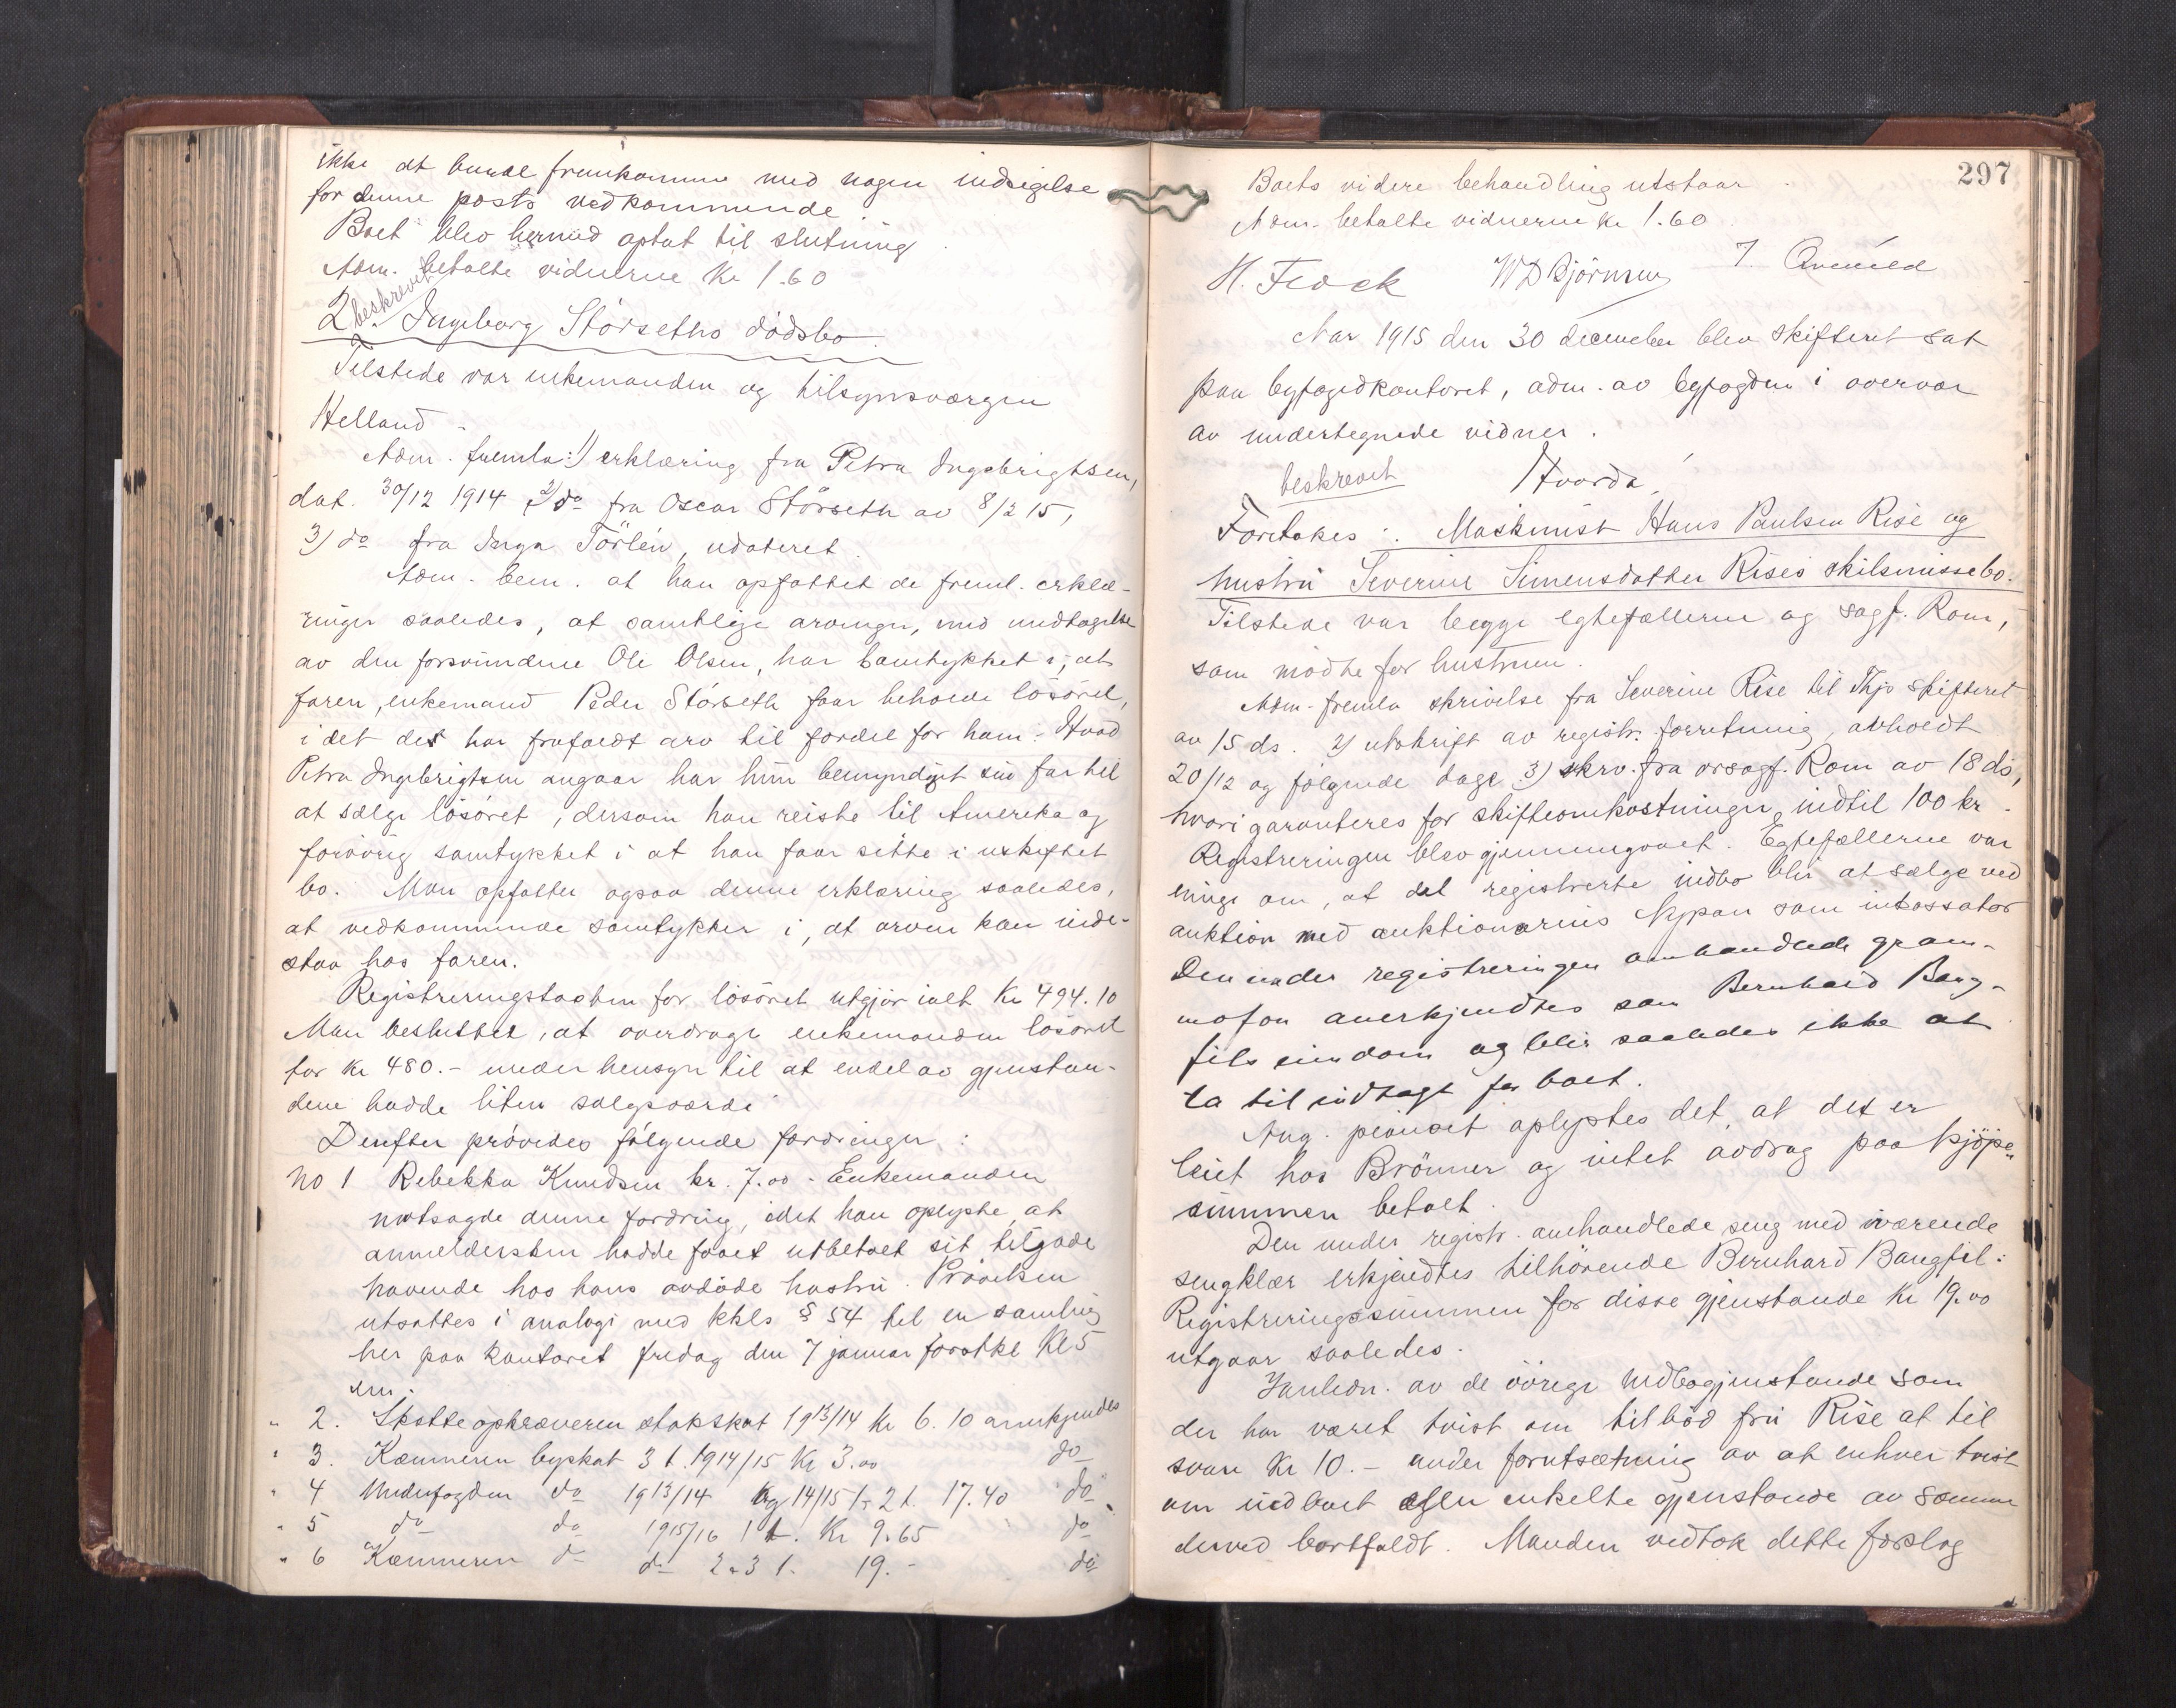 ikke at kunde fremkomme med nogen indsigelse
for denne posts vedkommende.
Boet blev hermed optat til slutning.
Adm. betalte vidnerne Kr 1.60
beskrevet
2. Ingeborg Störseths dödsbo.
Tilstede var enkemanden og tilsynsværgen
Helland.
Adm. fremla: 1) erklæring fra Petra Ingebrigtsen,
dat. 30/12 1914 2) do fra Oscar Störseth av 8/2 15,
3) do fra Inga Törlén, udateret.
Adm. bem. at han opfattet de freml. erklæ-
ringer saaledes, at samtlige arvinger, med undtagelse
av den forsvundne Ole Olsen, har samtykket i, at
faren, enkemand Peder Störseth faar beholde lösöret,
i det de har frafaldt arv til fordel for ham. Hvad
Petra Ingebrigtsen angaar har hun bemyndiget sin far til
at sælge lösöret, dersom han reiste til Amerika og
forövrig samtykket i at han faar sitte i uskiftet
bo. Man opfatter ogsaa denne erklæring saaledes,
at vedkommende samtykker i, at arven kan inde-
staa hos faren.
Registreringstaksten for lösöret utgjör ialt Kr 494.10
Man besluttet, at overdrage enkemanden lösöret
for Kr 480.- under hensyn til at endel av gjenstan-
dene hadde liten salgsværdi
Derefter prövedes fölgende fordringer:
No 1 Rebekka Knudsen kr. 7.00 - Enkemanden
motsagde denne fordring, idet han oplyste, at
anmeldersken hadde faaet utbetalt sit tilgode
havende hos hans avdöde hustru. Prövelsen
utsattes i analogi med kkls § 54 til en samling
her paa kontoret fredag den 7 januar förstk. Kl 5
em.
" 2. Skatteopkræveren statsskat 1913/14 Kr 6.10 anerkjendes
" 3. Kæmneren byskat 3 t. 1914/15 Kr 3.00 do
" 4 Underfogden do 1913/14 og 14/15 1-2 t. 17.40 do
" 5 do do 1915/16 1 t. Kr 9.65 do
" 6 Kæmneren do do 2 & 3 t. 19.- do
297
Boets videre behandling utstaar.
Adm. betalte vidnerne Kr 1.60.
H. Flock WD Björnsen J.
Aar 1915 den 30 december blev skifteret sat
paa byfogedkontoret, adm. av byfogden i overvær
av undertegnede vidner.
beskrevet Hvorda,
Foretokes: Maskinist Hans Paulsen Rise og
hustru Severine Simensdatter Rises skilsmissebo.
Tilstede var begge egtefællerne og sagf. Rom,
som mödte for hustruen.
Adm. fremla skrivelse fra Severine Rise til Thjs skifteret
av 15 ds. 2) utskrift av registr. forretning, avholdt
20/12 og fölgende dage 3) skrv. fra orsagf. Rom av 18 ds,
hvori garanteres for skifteomkostninger indtil 100 kr.
Registreringen blev gjennemgaaet. Egtefællerne var
enige om, at det registrerte indbo blir at sælge ved
auktion med auktionarius Nypan som inkassator
Den under registreringen omhandlede gram-
mofon anerkjendtes som Bernhard Bang-
fils eiendom og blir saaledes ikke at
ta til indtægt for boet.
Ang. pianoet oplystes det, at det er
leiet hos Brönner og intet avdrag paa kjöpe-
summen betalt.
Den under registr. omhandlede seng med iværende
sengklær erkjendtes tilhörende Bernhard Bangfil:
Registreringssummen for disse gjenstande Kr 19.00
utgaar saaledes.
I anledn. av de övrige indbogjenstande som
der har været tvist om tilböd fru Rise at til
svare Kr 10.- under forutsætning av at enhver tvist
om indboet eller enkelte gjenstande av samme
derved bortfaldt. Manden vedtok dette forslag